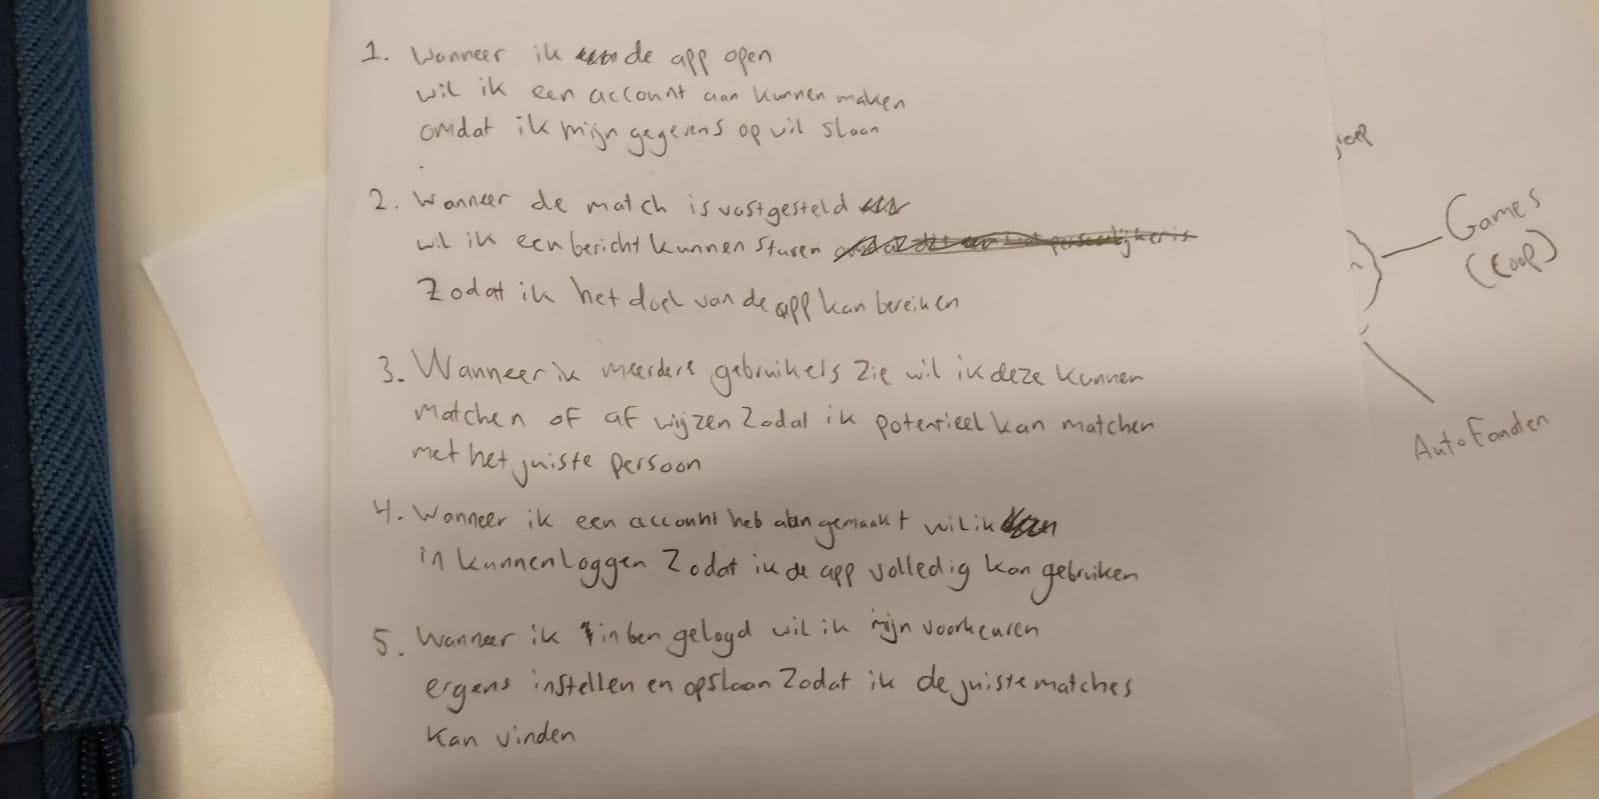 1. Wanneer ik de app open
wil ik een account aan kunnen maken
omdat ik mijn gegevens op wil slaan
2. Wanneer de match is vastgesteld
wil ik een bericht kunnen sturen
Zodat ik het doel van de app kan bereiken
3. Wanneer ik meerdere gebruikers zie wil ik deze kunnen
matchen of af wijzen Zodat ik potentieel kan matchen
met het juiste persoon
4. Wanneer ik een account heb aangemaakt wil ik
in kunnen loggen Zodat ik de app volledig kan gebruiken
5. Wanneer ik in ben gelogd wil ik mijn voorkeuren
ergens instellen en opslaan Zodat ik de juiste matches
kan vinden
Games
(Coop)